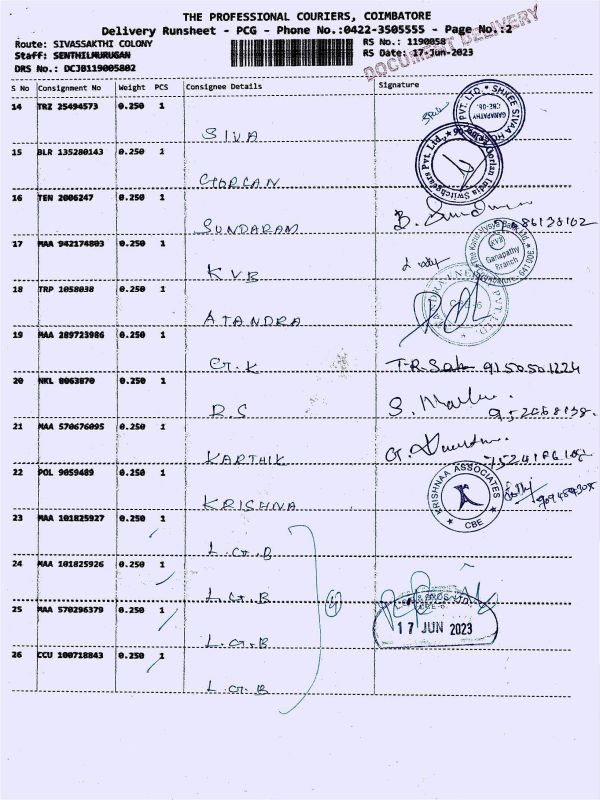 THE PROFESSIONAL COURIERS, COIMBATORE
Delivery Runsheet - PCG - Phone No.:0422-3505555 - Page No.:2
DOCUMENT DELIVERY
Route: SIVASSAKTHI COLONY RS No.: 1190058
Staff: SENTHILMURUGAN RS Date: 17-Jun-2023
DRS No.: DCJB119005802
S No Consignment No Weight PCS Consignee Details Signature
14 TRZ 25494573 0.250 1
SIVA
15 BLR 135280143 0.250 1
GORLAN
16 TEN 2006247 0.250 1
SUNDARAM
17 MAA 942174803 0.250 1
KVB
Ganapathy
Branch
18 TRP 1058038 0.250 1
ATANDRA
19 MAA 289723986 0.250 1
G.K 9150501224
20 NKL 8063870 0.250 1
R.S
21 MAA 570676095 0.250 1
KARTHIK
22 POL 9059489 0.250 1
KRISHNA
KRISHNAA ASSOCIATES
CBE
23 MAA 101825927 0.250 1
L.G.B
24 MAA 101825926 0.250 1
L.G.B 4
25 MAA 570296379 0.250 1
L.G.B
17 JUN 2023
26 CCU 100718843 0.250 1
L.G.B